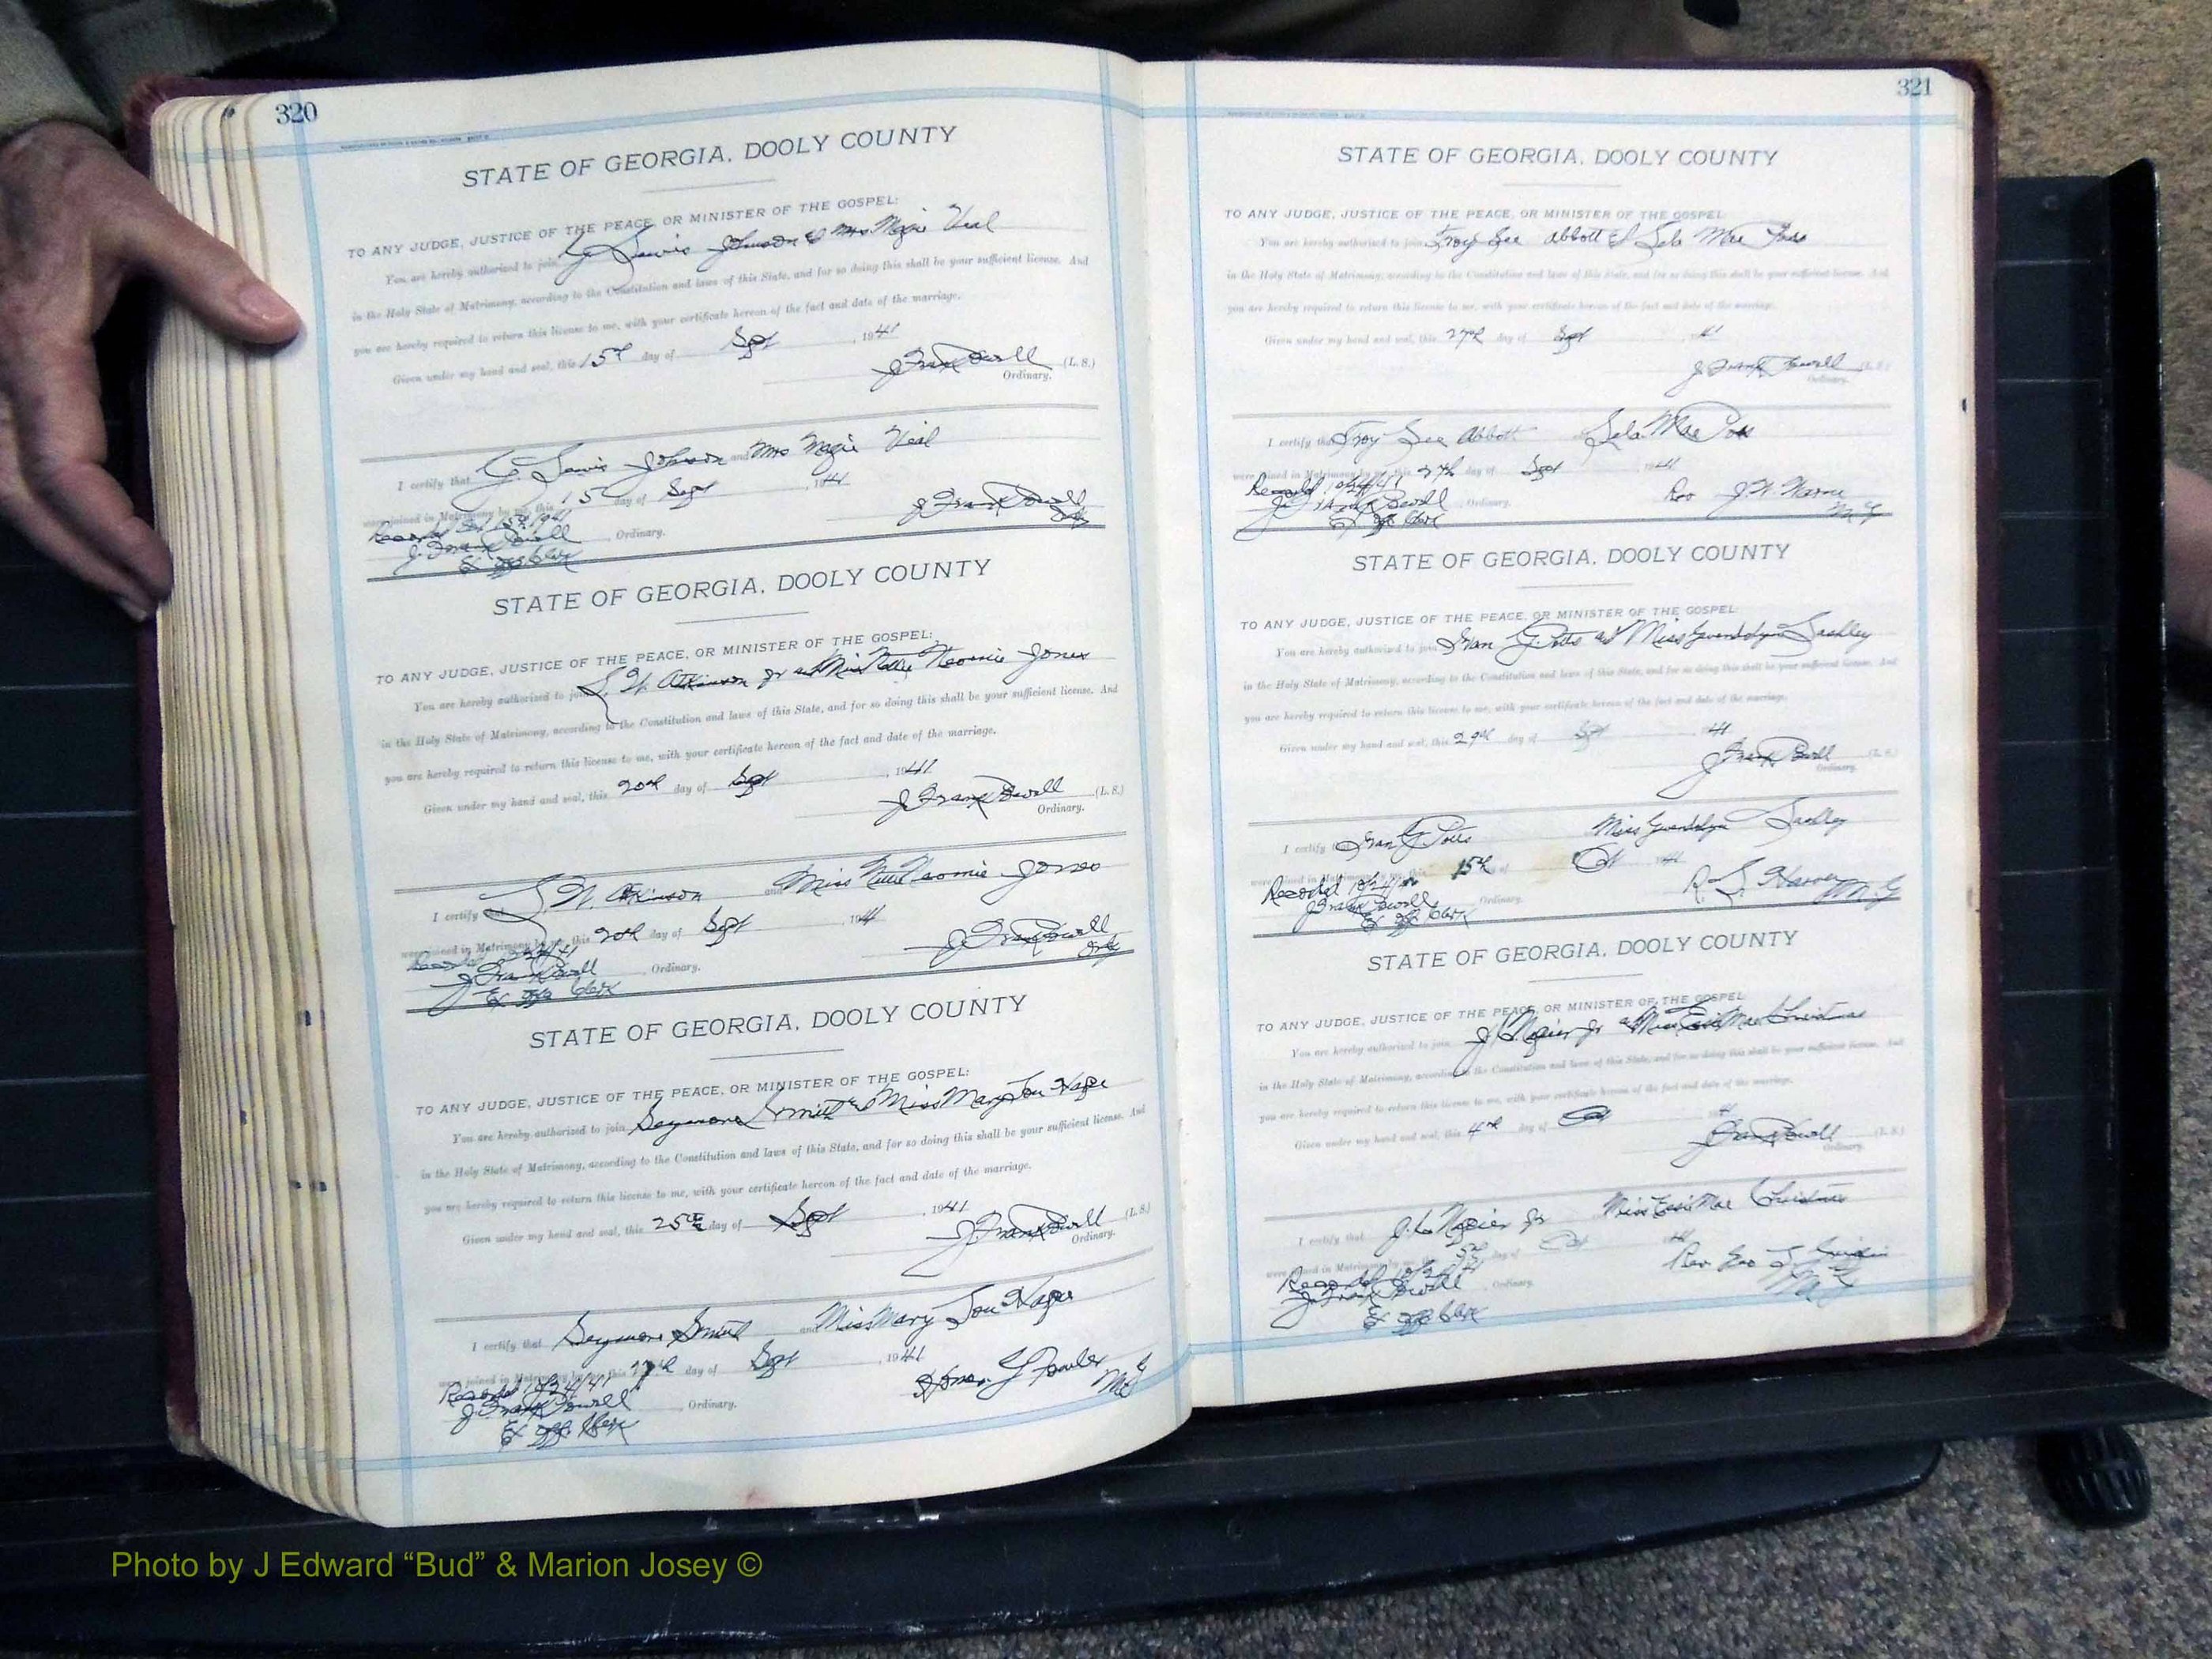 320
STATE OF GEORGIA, DOOLY COUNTY
TO ANY JUDGE, JUSTICE OF THE PEACE, OR MINISTER OF THE GOSPEL:
You are hereby authorized to join Lewis Johnson & Mrs Magie Veal
in the Holy State of Matrimony, according to the Constitution and laws of this State, and for so doing this shall be your sufficient license. And
you are hereby required to return this license to me, with your certificate hereon of the fact and date of the marriage.
Given under my hand and seal, this 15th day of Sept, 1941
J Frank Powell (L. S.)
Ordinary.
I certify that Lewis Johnson and Mrs Magie Veal
were joined in Matrimony by me, this 15 day of Sept, 1941
J Frank Powell
Ordy
Recorded 15th 1941
J. Frank Powell, Ordinary.
Ex off Clerk
STATE OF GEORGIA, DOOLY COUNTY
TO ANY JUDGE, JUSTICE OF THE PEACE, OR MINISTER OF THE GOSPEL:
You are hereby authorized to join W. Atkinson Jr and Miss Neomie Jones
in the Holy State of Matrimony, according to the Constitution and laws of this State, and for so doing this shall be your sufficient license. And
you are hereby required to return this license to me, with your certificate hereon of the fact and date of the marriage.
Given under my hand and seal, this 20th day of Sept, 1941
J Frank Powell (L. S.)
Ordinary.
I certify that W. Atkinson and Miss Neomie Jones
were joined in Matrimony by me, this 20th day of Sept, 1941
J Frank Powell
Ordy
Recorded
J Frank Powell, Ordinary.
Ex off Clerk
STATE OF GEORGIA, DOOLY COUNTY
TO ANY JUDGE, JUSTICE OF THE PEACE, OR MINISTER OF THE GOSPEL:
You are hereby authorized to join Seymore Smith & Miss Mary Lou
in the Holy State of Matrimony, according to the Constitution and laws of this State, and for so doing this shall be your sufficient license. And
you are hereby required to return this license to me, with your certificate hereon of the fact and date of the marriage.
Given under my hand and seal, this 25th day of Sept, 1941
J Frank Powell (L. S.)
Ordinary.
I certify that Seymore Smith and Miss Mary Lou
were joined in Matrimony by me, this day of Sept, 1941
J Fowler
MG
Recorded 10/24/41
J. Frank Powell, Ordinary.
Ex off Clerk
321
STATE OF GEORGIA, DOOLY COUNTY
TO ANY JUDGE, JUSTICE OF THE PEACE, OR MINISTER OF THE GOSPEL:
You are hereby authorized to join Troy Lee Abbott & Lela Mae Poss
in the Holy State of Matrimony, according to the Constitution and laws of this State, and for so doing this shall be your sufficient license. And
you are hereby required to return this license to me, with your certificate hereon of the fact and date of the marriage.
Given under my hand and seal, this 27th day of Sept 41
J Frank Powell (L. S.)
Ordinary.
I certify that Troy Lee Abbott Lela Mae Poss
were joined in Matrimony by me, this 27th day of Sept 1941
Rev J. W.
M G
Recorded 10/24/41
J. Frank Powell, Ordinary.
Ex off Clerk
STATE OF GEORGIA, DOOLY COUNTY
TO ANY JUDGE, JUSTICE OF THE PEACE, OR MINISTER OF THE GOSPEL:
You are hereby authorized to join G. Potts and Miss Gwendolyn Lashley
in the Holy State of Matrimony, according to the Constitution and laws of this State, and for so doing this shall be your sufficient license. And
you are hereby required to return this license to me, with your certificate hereon of the fact and date of the marriage.
Given under my hand and seal, this 29th day of Sept 41
J Frank Powell (L. S.)
Ordinary.
I certify that G Potts Miss Gwendolyn Lashley
were joined in Matrimony by me, this 15th of Oct 1941
R. L. Harvey M. G
Recorded 10/24/
J Frank Powell, Ordinary.
Ex off Clerk
STATE OF GEORGIA, DOOLY COUNTY
TO ANY JUDGE, JUSTICE OF THE PEACE, OR MINISTER OF THE GOSPEL
You are hereby authorized to join J L Napier Jr and Miss Essie Mae Christmas
in the Holy State of Matrimony, according to the Constitution and laws of this State, and for so doing this shall be your sufficient license. And
you are hereby required to return this license to me, with your certificate hereon of the fact and date of the marriage.
Given under my hand and seal, this 4th day of Oct 41
J Frank Powell (L. S.)
Ordinary.
I certify that J. L. Napier Jr Miss Essie Mae Christmas
were joined in Matrimony 5th day of Oct 41
Rev Geo
M G
Recorded
J. Frank Powell, Ordinary.
Ex off Clerk
Photo by J Edward “Bud” & Marion Josey ©